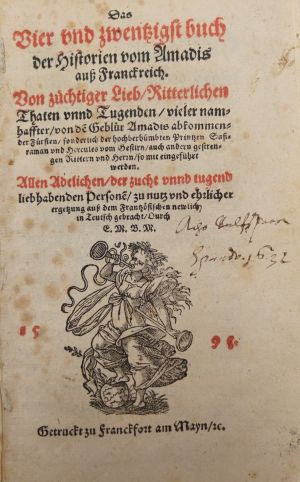 Das
Vier vnd zwentzigst buch
der Historien vom Amadis
auß Franckreich.
Von züchtiger Lieb/Ritterlichen
Thaten vnnd Tugenden/vieler nam-
haffter/von dē Geblüt Amadis abkommen-
der Fürsten/sonderlich der hochberhümbten Printzen
raman vnd Hercules vom Gestirn/auch andern gestren-
gen Rittern vnd Herrn/so mit eingeführet
werden.
Allen Adelichen/der zucht vnnd tugend
liebhabenden Personē/zu nutz vnd ehrlicher
ergetzung auß dem Frantzösischen newlich
in Teutsch gebracht/Durch
E. M. B. M.
15 95.
Getruckt zu Franckfort am Mayn/ꝛc.